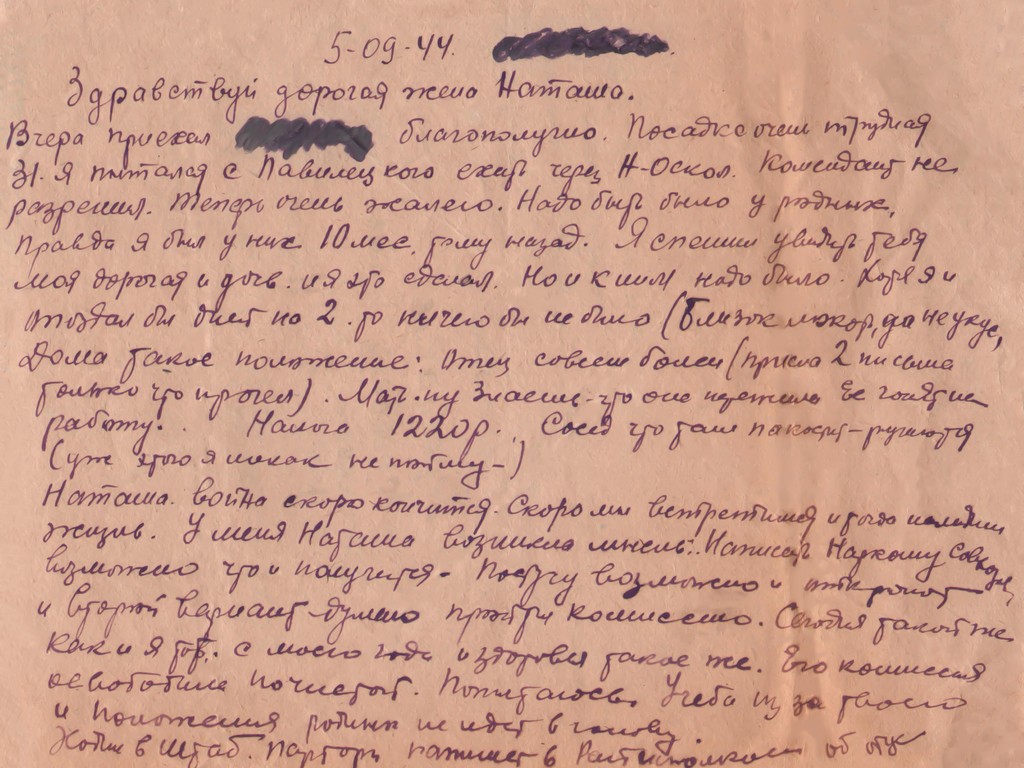 5-09-44.
Здравствуй дорогая жена Наташа.
Вчера приехал благополучно. Посадка очень трудная
31. я пытался с Павелецкого ехать через Н-Оскол. Комендант не
разрешил. Теперь очень жалею. Надо быть было у родных.
Правда я был у них 10 мес. тому назад. Я спешил увидить тебя
моя дорогая и дочь. и я это сделал. Но и к ним надо было. Хотя я и
опоздал бы дней на 2. то ничего бы не было (близок локоть, да не укус,
Дома такое положение: Отец совсем болен (пришла 2 письма
только что прочел). Мать. ну знаешь что она пережила Ее гонят на
работу. Налога 1220р. Сосед что там пакостит - ругаются
(уж этого я никак не пойму-)
Наташа. война скоро кончится. Скоро мы встретимся и тогда наладим
жизнь. У меня Наташа возникла мысль: Написать Наркому
возможно что и получится. возможно и
и второй вариант думаю пройти комиссию. Сегодня такой же
как и я тов. с моего года и здоровья такое же. Его комиссия
освободила по чистой. Попытаюсь. Учеба из за твоего
и положения родных не идет в голову.
Ходил в штаб. Парторг напишет в об